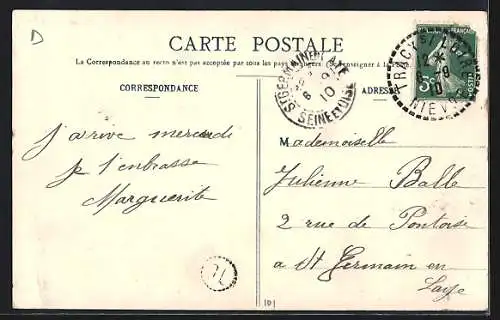 D
CARTE POSTALE
La Correspondance au recto n'est pas acceptée par tous les pays étrangers (Se renseigner à la Poste)
CORRESPONDANCE
ADRESSE
ST GERMAIN EN LAYE
8 10
SEINE ET OISE
TRACY S/ LOIRE
NIEVRE
5c
j'arrive mercredi
je t'embrasse
Marguerite
Mademoiselle
Julienne Balle
2 rue de Pontoise
à St Germain en
Laye